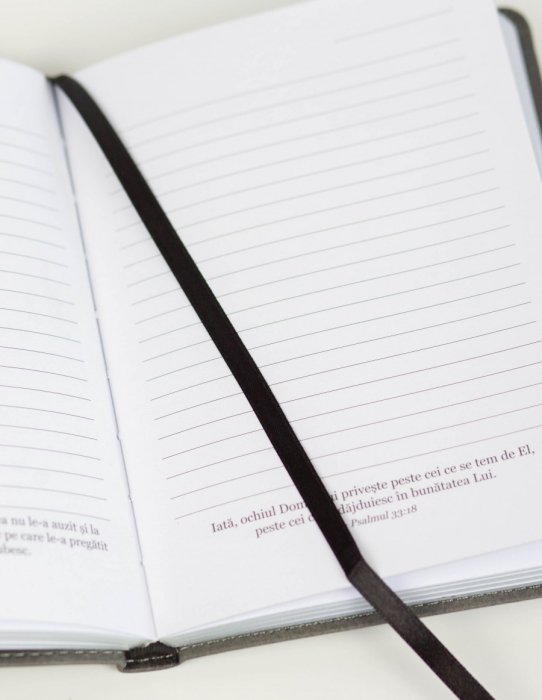 a nu le-a auzit și la
pe care le-a pregătit
ubesc.
Iată, ochiul Dom ui privește peste cei ce se tem de El,
peste cei dăjduiesc în bunătatea Lui.
Psalmul 33:18